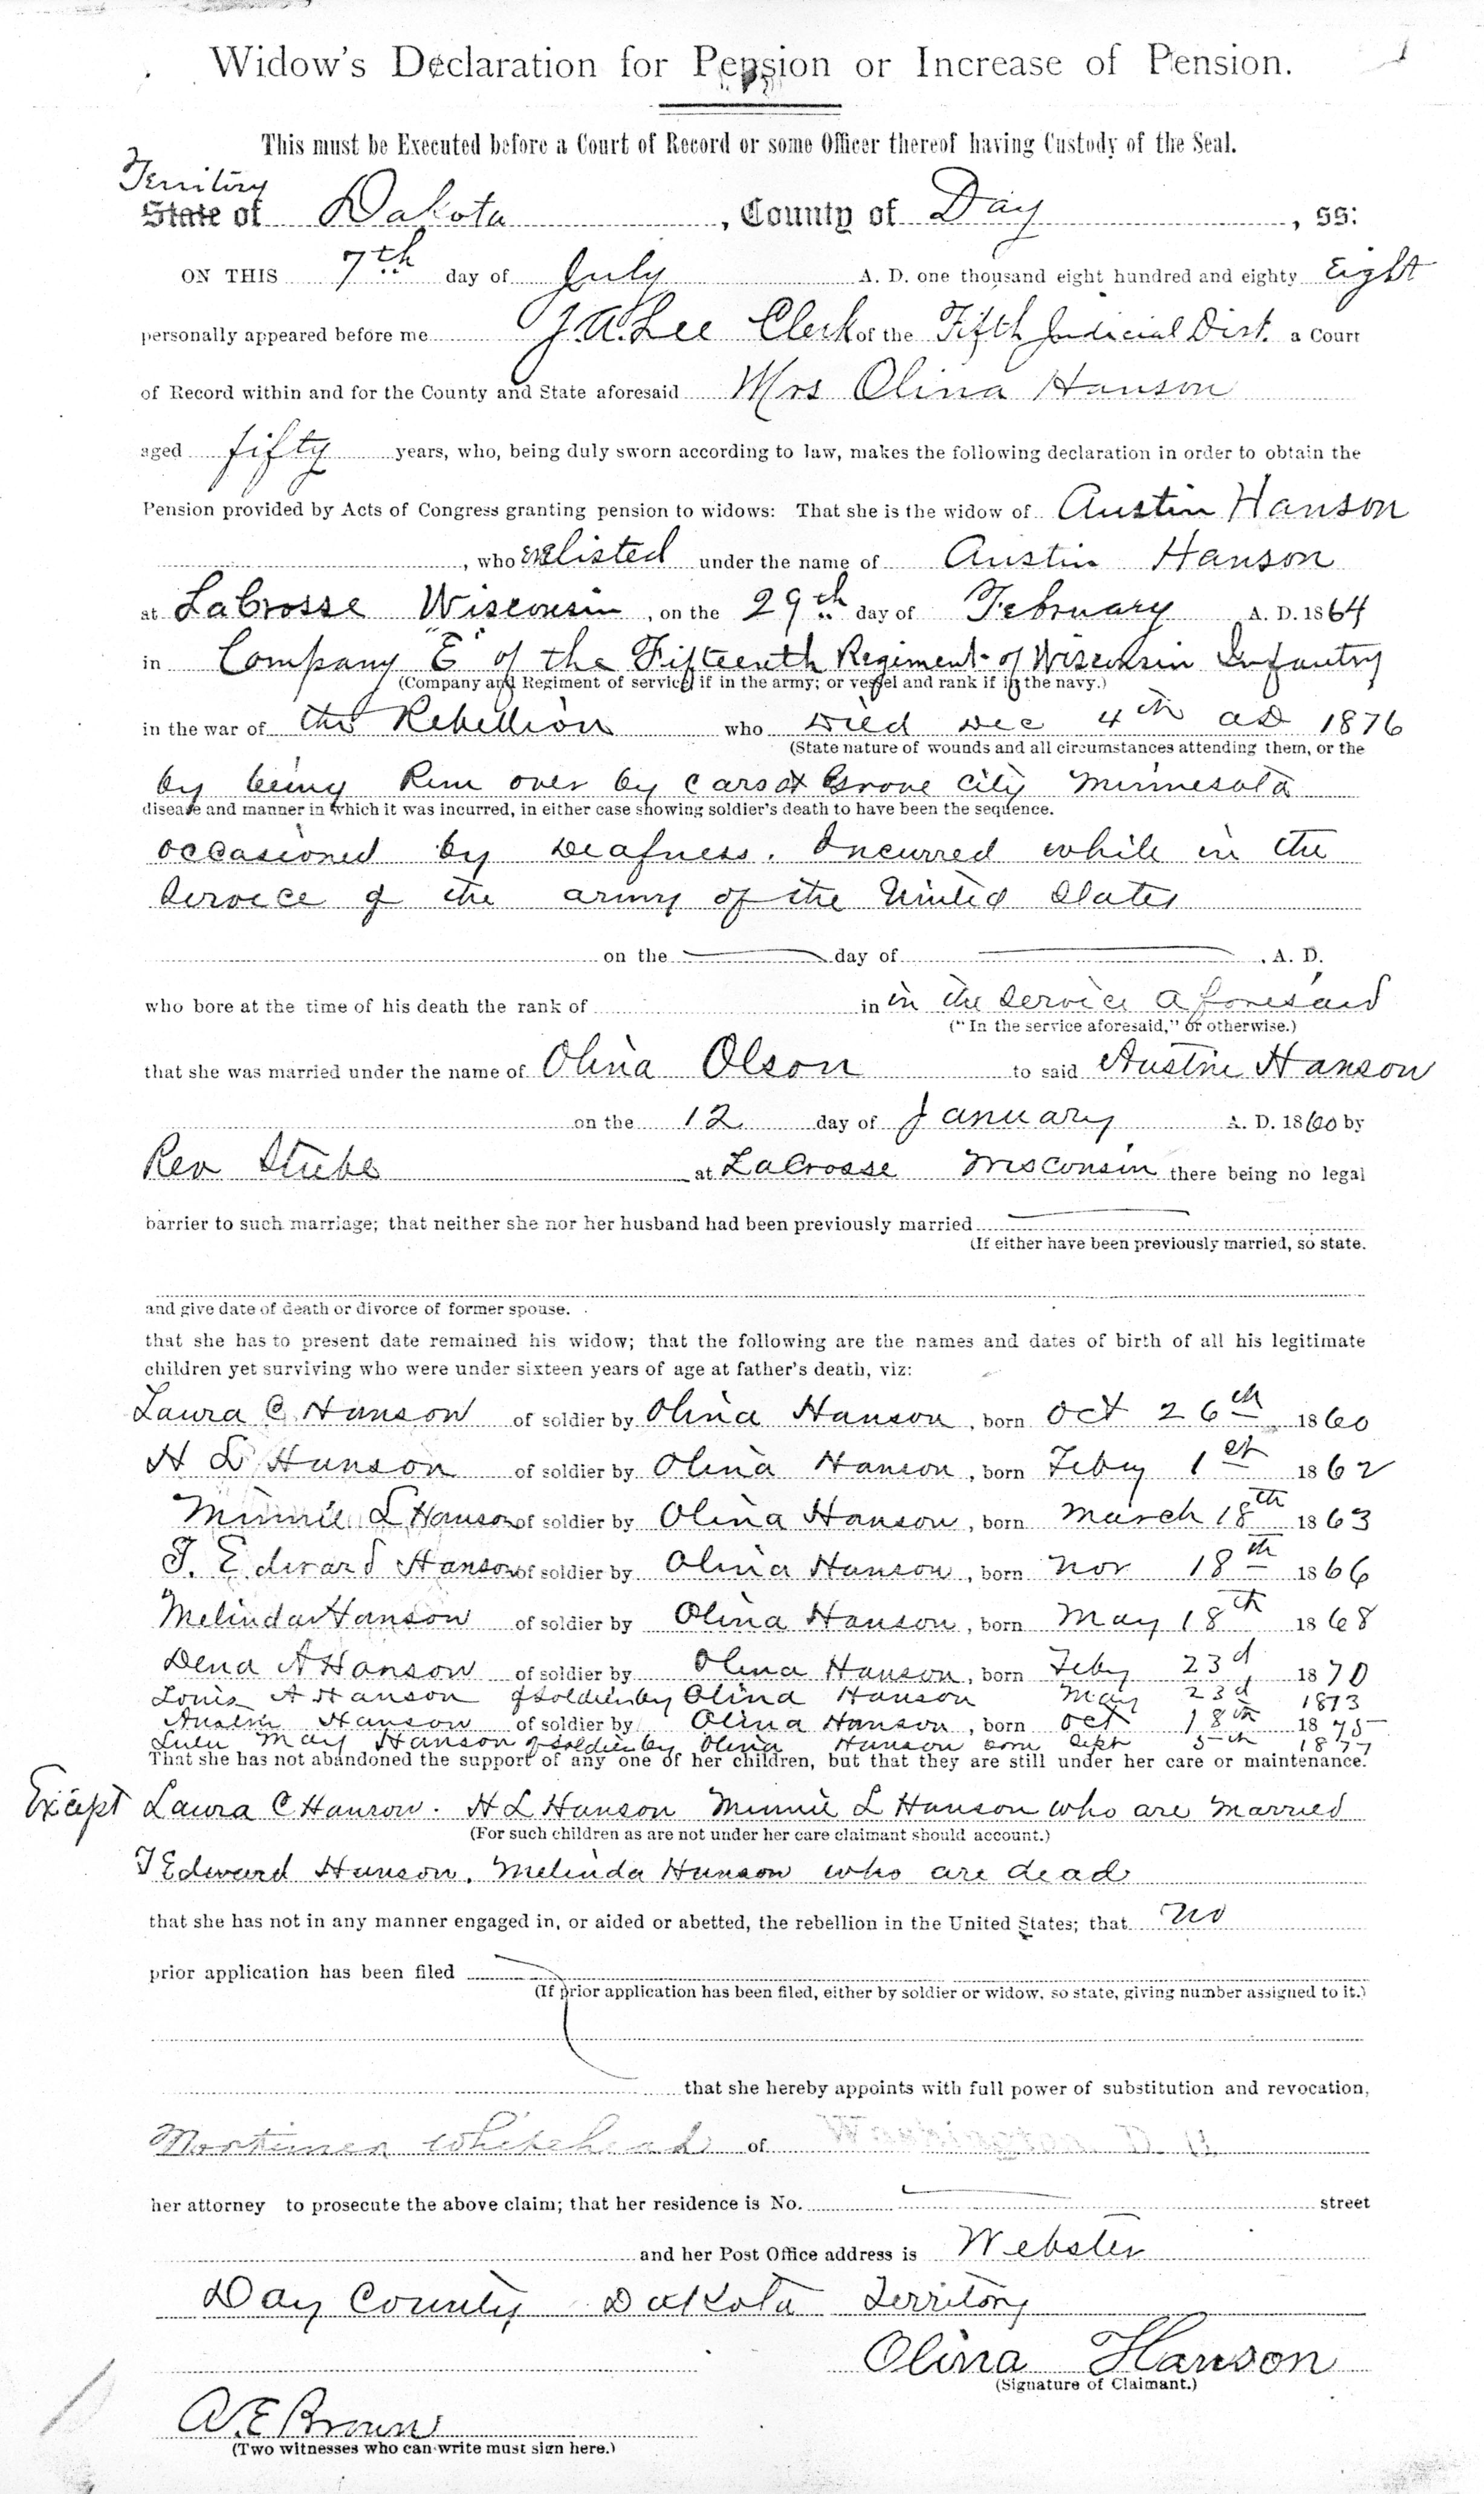 Widow's Declaration for Pension or Increase of Pension.
This must be Executed before a Court of Record or some Officer thereof having Custody of the Seal.
Territory
State of Dakota, County of Day, ss:
ON THIS 7th day of July A. D. one thousand eight hundred and eighty Eight
personally appeared before me J. A. Lee Clerk of the Fifth Judicial Dist. a Court
of Record within and for the County and State aforesaid Mrs Olina Hanson
aged fifty years, who, being duly sworn according to law, makes the following declaration in order to obtain the
Pension provided by Acts of Congress granting pension to widows: That she is the widow of Austin Hanson
, who enlisted under the name of Austin Hanson
at LaCrosse Wisconsin, on the 29th day of February A. D. 1864
in Company "E" of the Fifteenth Regiment of Wisconsin Infantry
(Company and Regiment of service, if in the army; or vessel and rank if in the navy.)
in the war of the Rebellion who Died Dec 4th AD 1876
(State nature of wounds and all circumstances attending them, or the
by being Run over by cars at Grove City Minnesota
disease and manner in which it was incurred, in either case showing soldier's death to have been the sequence.
occasioned by Deafness. Incurred while in the
Service of the army of the United States
on the day of , A. D.
who bore at the time of his death the rank of in in the Service aforesaid
("In the service aforesaid," or otherwise.)
that she was married under the name of Olina Olson to said Austin Hanson
on the 12 day of January A. D. 1860 by
Rev Stube at LaCrosse Wisconsin there being no legal
barrier to such marriage; that neither she nor her husband had been previously married
(If either have been previously married, so state.
and give date of death or divorce of former spouse.
that she has to present date remained his widow; that the following are the names and dates of birth of all his legitimate
children yet surviving who were under sixteen years of age at father's death, viz:
Laura C Hanson of soldier by Olina Hanson, born Oct 26th 1860
H L Hanson of soldier by Olina Hanson, born Feby 1st 1862
Minnie L Hanson of soldier by Olina Hanson, born March 18th 1863
T. Edward Hanson of soldier by Olina Hanson, born Nov 18th 1866
Melinda Hanson of soldier by Olina Hanson, born May 18th 1868
Dena A Hanson of soldier by Olina Hanson, born Feby 23d 1870
Louis A Hanson of soldier by Olina Hanson May 23d 1873
Austin Hanson of soldier by Olina Hanson, born Oct 18th 1875
Lulu May Hanson of soldier by Olina Hanson born Sept 5th 1877
That she has not abandoned the support of any one of her children, but that they are still under her care or maintenance.
Except Laura C Hanson. H L Hanson Minnie L Hanson who are married
(For such children as are not under her care claimant should account.)
T Edward Hanson. Melinda Hanson who are dead
that she has not in any manner engaged in, or aided or abetted, the rebellion in the United States; that no
prior application has been filed
(If prior application has been filed, either by soldier or widow, so state, giving number assigned to it.)
that she hereby appoints with full power of substitution and revocation,
Mortimer Whitehead of
her attorney to prosecute the above claim; that her residence is No. street
and her Post Office address is Webster
Day County Dakota Territory
Olina Hanson
(Signature of Claimant.)
A. E Brown
(Two witnesses who can write must sign here.)